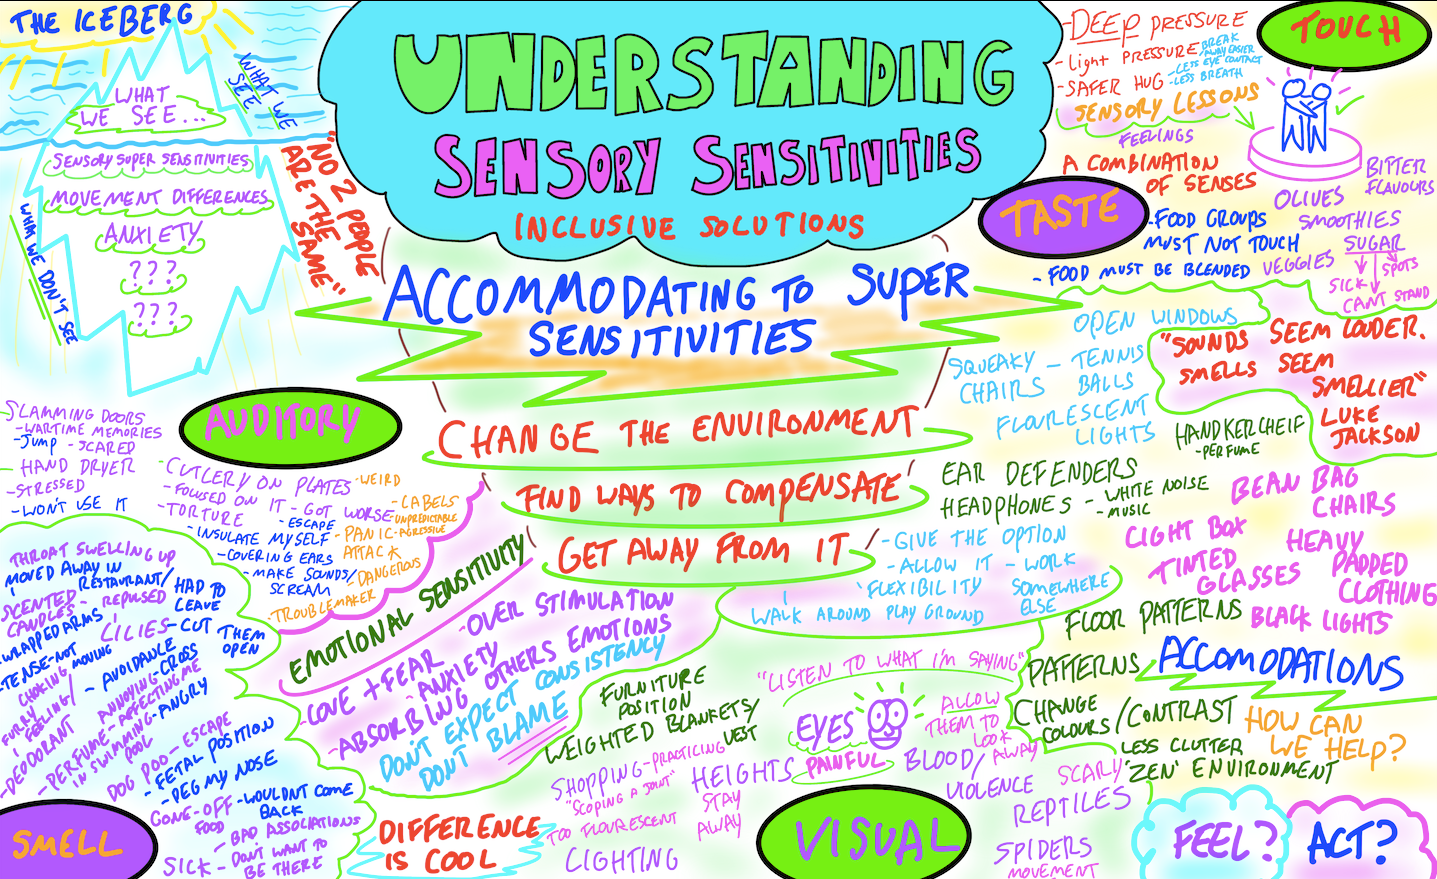 THE ICEBERG
WHAT
WE SEE...
WHAT WE
SEE
SENSORY SUPER SENSITIVITIES
MOVEMENT DIFFERENCES
ANXIETY
???
???
WHAT WE DON'T SEE
"NO 2 PEOPLE
ARE THE
SAME"
UNDERSTANDING
SENSORY SENSITIVITIES
INCLUSIVE SOLUTIONS
ACCOMMODATING TO SUPER
SENSITIVITIES
CHANGE THE ENVIRONMENT
FIND WAYS TO COMPENSATE
GET AWAY FROM IT
TOUCH
-DEEP PRESSURE
-light PRESSURE
-BREAK
AWAY EASIER
-SAFER HUG
-LESS EYE CONTACT
-LESS BREATH
SENSORY LESSONS
FEELINGS
A COMBINATION
OF SENSES
TASTE
-FOOD GROUPS
MUST NOT TOUCH
-FOOD MUST BE BLENDED
OLIVES
BITTER
FLAVOURS
SMOOTHIES
VEGGIES
SUGAR
SPOTS
SICK
CAN'T STAND
OPEN WINDOWS
SQUEAKY - TENNIS
CHAIRS BALLS
FLOURESCENT
LIGHTS
"SOUNDS SEEM LOUDER.
SMELLS SEEM
SMELLIER"
LUKE
JACKSON
HANDKERCHEIF
-PERFUME
EAR DEFENDERS
HEADPHONES
-WHITE NOISE
-MUSIC
-GIVE THE OPTION
-ALLOW IT - WORK
SOMEWHERE
ELSE
FLEXIBILITY
WALK AROUND PLAY GROUND
BEAN BAG
CHAIRS
LIGHT BOX
HEAVY
PADDED
CLOTHING
TINTED
GLASSES
BLACK LIGHTS
FLOOR PATTERNS
PATTERNS
ACCOMODATIONS
CHANGE
COLOURS/CONTRAST
LESS CLUTTER
'ZEN' ENVIRONMENT
HOW CAN
WE HELP?
FEEL?
ACT?
AUDITORY
SLAMMING DOORS
-WARTIME MEMORIES
-JUMP -SCARED
HAND DRYER
-STRESSED
-WON'T USE IT
CUTLERY ON PLATES
-WEIRD
-FOCUSED ON IT - GOT WORSE
-TORTURE
-ESCAPE
-INSULATE MYSELF
-COVERING EARS
-MAKE SOUNDS/
SCREAM
-LABELS
-UNPREDICTABLE
-AGRESSIVE
-PANIC
ATTACK
-DANGEROUS
-TROUBLEMAKER
EMOTIONAL SENSITIVITY
-OVER STIMULATION
-LOVE + FEAR
-ANXIETY
-ABSORBING OTHERS EMOTIONS
DON'T EXPECT CONSISTENCY
DON'T BLAME
THROAT SWELLING UP
MOVED AWAY IN
RESTAURANT/
SCENTED
CANDLES
-REPULSED
HAD TO
LEAVE
-WRAPPED ARMS
LILIES
-CUT THEM
OPEN
-TENSE-NOT
MOVING
CHOKING
-AVOIDANCE
-CROSS
ANNOYING
FURRY
FEELING/
-DEODORANT
-PERFUME-AFFECTING ME
IN SWIMMING
POOL
-ANGRY
DOG POO - ESCAPE
-FETAL POSITION
-PEG MY NOSE
GONE-OFF
FOOD
-WOULDN'T COME
BACK
-BAD ASSOCIATIONS
SICK - DON'T WANT TO
BE THERE
SMELL
DIFFERENCE
IS COOL
FURNITURE
POSITION
WEIGHTED BLANKETS/
VEST
SHOPPING-PRACTICING
"SCOPING A JOINT"
TOO FLOURESCENT
LIGHTING
HEIGHTS
STAY
AWAY
"LISTEN TO WHAT I'M SAYING"
EYES
PAINFUL
ALLOW
THEM TO
LOOK
AWAY
BLOOD/
VIOLENCE
SCARY
REPTILES
SPIDERS
MOVEMENT
VISUAL